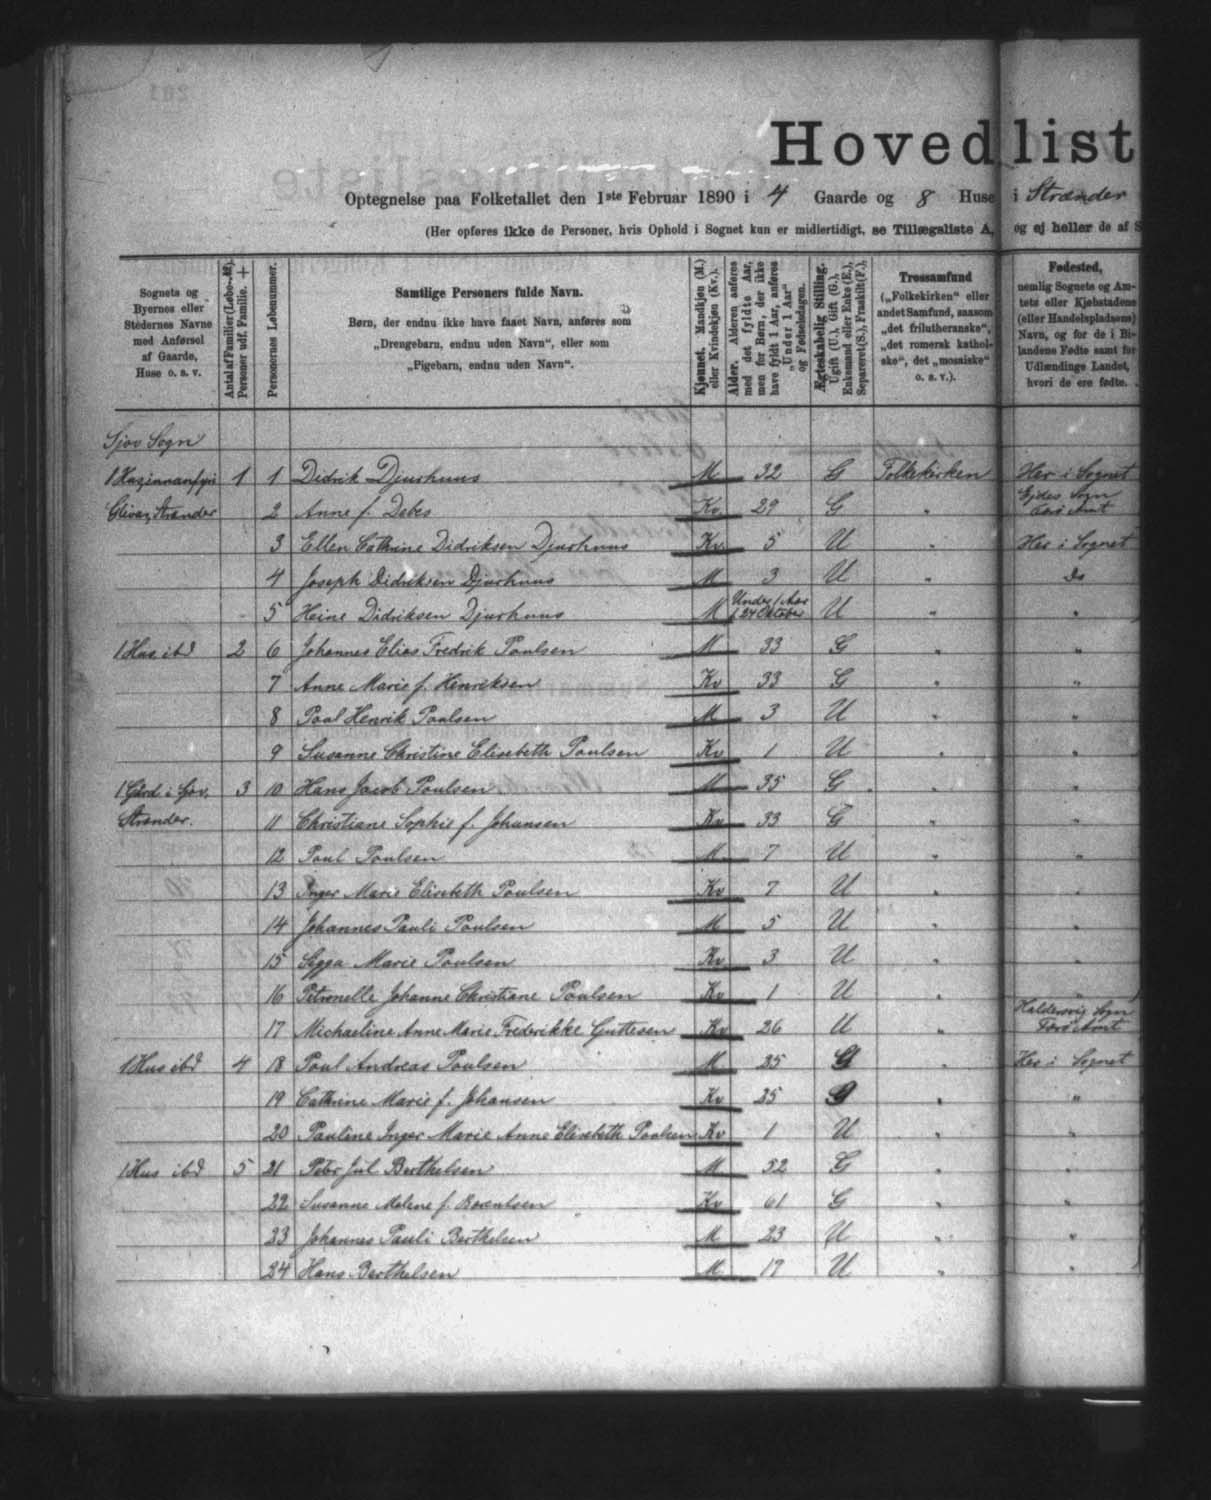 Hovedlist
Optegnelse paa Folketallet den 1ste Februar 1890 i 4 Gaarde og 8 Huse i Strænder
(Her opføres ikke de Personer, hvis Ophold i Sognet kun er midlertidigt, se Tillægsliste A, og ej heller de af S
Sognets og
Byernes eller
Stedernes Navne
med Anførsel
af Gaarde,
Huse o. s. v.
Antal af Familier (Løbe-№).
Personer udf. Familie. +
Personernes Løbenummer.
Samtlige Personers fulde Navn.
Børn, der endnu ikke have faaet Navn, anføres som
„Drengebarn, endnu uden Navn“, eller som
„Pigebarn, endnu uden Navn“.
Kjønnet. Mandkjøn (M.)
eller Kvindekjøn (Kv.).
Alder. Alderen anføres
med det fyldte Aar,
men for Børn, der ikke
have fyldt 1 Aar, anføres
„Under 1 Aar“
og Fødselsdagen.
Ægteskabelig Stilling.
Ugift (U.), Gift (G.),
Enkemand eller Enke (E.),
Separeret (S.), Fraskilt (F.).
Trossamfund
(„Folkekirken“ eller
andet Samfund, saasom
„det frilutheranske“,
„det romersk kathol-
ske“, det „mosaiske“
o. s. v.).
Fødested,
nemlig Sognets og Am-
tets eller Kjøbstadens
(eller Handelspladsens)
Navn, og for de i Bi-
landene Fødte samt for
Udlændinge Landet,
hvori de ere fødte.
Sjov Sogn
1 1 Didrik Djurhuus M 32 G Folkekirken Her i Sognet
Strænder 2 Anne f. Debes Kv. 29 G " Ejdes Sogn
Færø Amt
3 Ellen Cathrine Didriksen Djurhuus Kv 5 U " Her i Sognet
4 Joseph Didriksen Djurhuus M 3 U " Do
5 Heine Didriksen Djurhuus M Under 1 Aar
f 24 Oktober U " "
1 Hus ibd 2 6 Johannes Elias Fredrik Poulsen M 33 G " "
7 Anne Marie f. Henriksen Kv 33 G " "
8 Poul Henrik Poulsen M 3 U " "
9 Susanne Christine Elisebeth Poulsen Kv 1 U " "
1 Gård i 3 10 Hans Jacob Poulsen M 35 G " "
Strænder. 11 Christiane Sophie f. Johansen Kv 33 G " "
12 Poul Poulsen M. 7 U " "
13 Inger Marie Elisebeth Poulsen Kv 7 U " "
14 Johannes Pauli Poulsen M 5 U " "
15 Marie Poulsen Kv 3 U " "
16 Petronelle Johanne Christiane Poulsen Kv 1 U " "
17 Michaeline Anne Marie Frederikke Guttesen Kv 26 U " Haldersvig Sogn
Færø Amt
1 Hus ibd 4 18 Poul Andreas Poulsen M. 25 G " Her i Sognet
19 Cathrine Marie f. Johansen Kv 25 G " "
20 Pauline Inger Marie Anne Elisebeth Poulsen Kv 1 U " "
1 Hus ibd 5 21 Peter Jul Berthelsen M 52 G " "
22 Susanne Malene f. Berentsen Kv 61 G " "
23 Johannes Pauli Berthelsen M 23 U " "
24 Hans Berthelsen M. 17 U " "